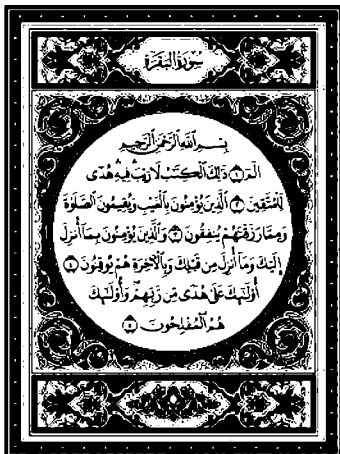 سُورَةُ البَقَرَةِ
بِسْمِ اللَّهِ الرَّحْمَٰنِ الرَّحِيمِ
الٓمٓ ١ ذَٰلِكَ الْكِتَابُ لَا رَيْبَ فِيهِ هُدًى
لِّلْمُتَّقِينَ ٢ الَّذِينَ يُؤْمِنُونَ بِالْغَيْبِ وَيُقِيمُونَ الصَّلَوٰةَ
وَمِمَّا رَزَقْنَٰهُمْ يُنفِقُونَ ٣ وَالَّذِينَ يُؤْمِنُونَ بِمَا أُنزِلَ
إِلَيْكَ وَمَا أُنزِلَ مِن قَبْلِكَ وَبِالْآخِرَةِ هُمْ يُوقِنُونَ ٤
أُولَٰئِكَ عَلَىٰ هُدًى مِّن رَّبِّهِمْ وَأُولَٰئِكَ
هُمُ الْمُفْلِحُونَ ٥